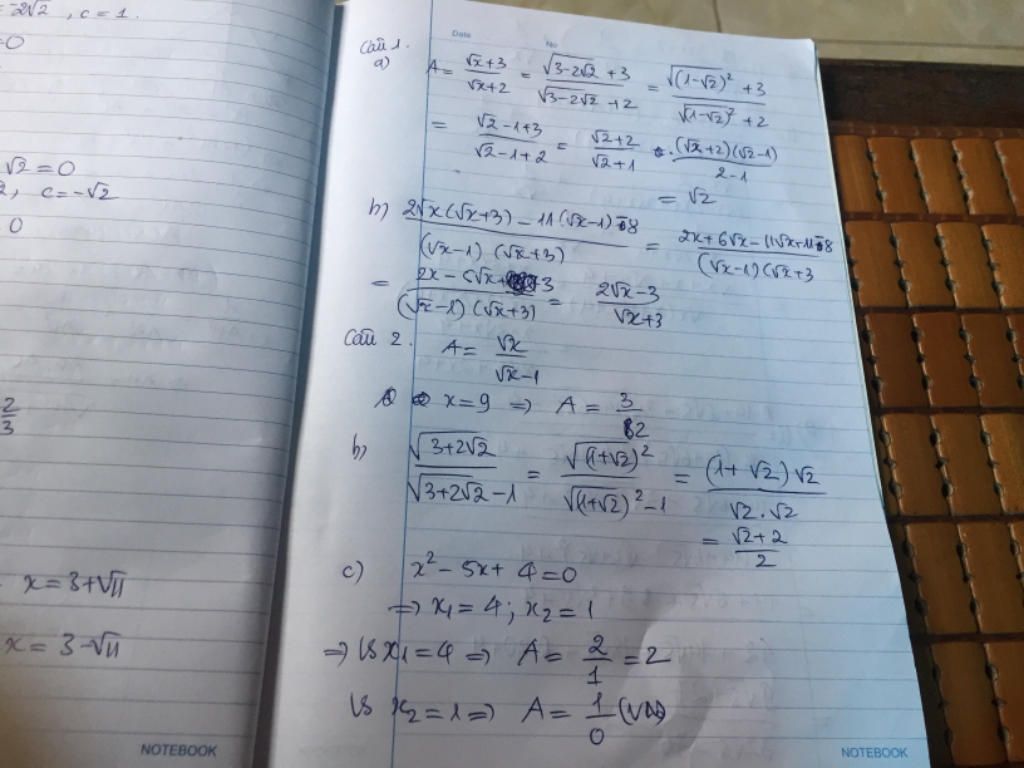 -2√2, c = 1.
=0
√2 = 0
2, c = -√2
0
2/3
x = 3+√11
x = 3-√11
NOTEBOOK
Date No
Câu 1.
a) A = (√x+3)/(√x+2) = (√(3-2√2) +3)/(√(3-2√2) +2) = (√((1-√2)²) +3)/(√((1-√2)²) +2)
= (√2-1+3)/(√2-1+2) = (√2+2)/(√2+1) = ((√x+2)(√2-1))/(2-1)
= √2
b) (2√x(√x+3) - 11(√x-1) -8)/((√x-1)(√x+3)) = (2x+6√x-11√x+11-8)/((√x-1)(√x+3
= (2x-5√x+3)/((√x-1)(√x+3)) = (2√x-3)/(√x+3)
Câu 2. A = √x/(√x-1)
x=9 => A = 3/2
b) √(3+2√2)/(√(3+2√2) -1) = √((1+√2)²)/(√((1+√2)²) -1) = ((1+√2)√2)/(√2.√2)
= (√2+2)/2
c) x² - 5x + 4 = 0
=> x₁ = 4; x₂ = 1
=> Vs x₁ = 4 => A = 2/1 = 2
Vs x₂ = 1 => A = 1/0 (VN)
NOTEBOOK